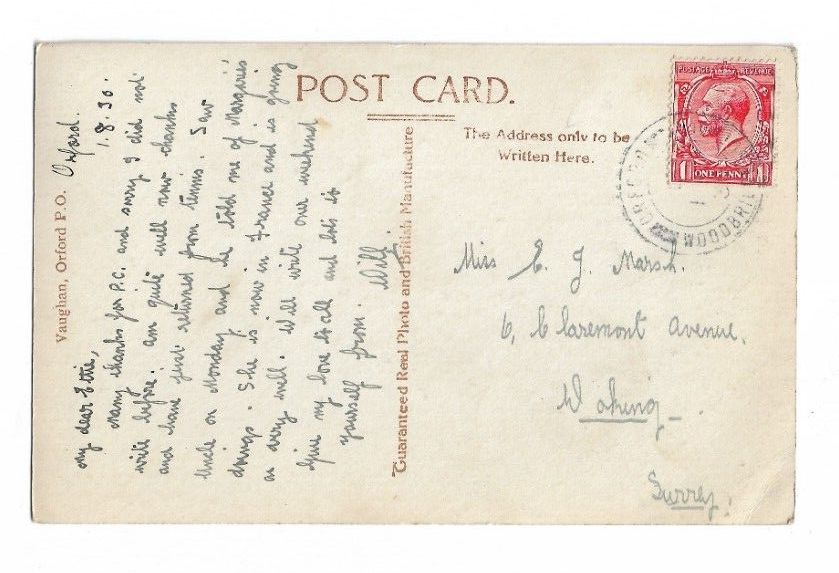 POST CARD.
The Address only to be
Written Here.
Vaughan, Orford P.O.
Guaranteed Real Photo and British Manufacture
POSTAGE REVENUE
1 ONE PENNY 1
ORFORD
WOODBRI
Orford.
1.8.30.
My dear Ettie,
Many thanks for P.C. and sorry I did not
write before. Am quite well now thanks
and have just returned from tennis. Saw
Uncle on Monday and he told me of Margaries
doings. She is now in France and is going
on very well. Will write over weekend
Give my love to all and lots to
yourself from. Wilf.
Miss E. J. Marsh.
6, Claremont Avenue.
Woking
Surrey.